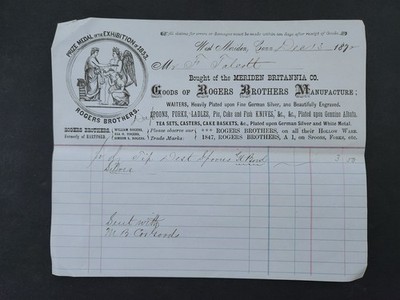 All claims for errors or damages must be made within ten days after receipt of Goods.
West Meriden, Conn. Dec 13 187
PRIZE MEDAL N.Y. EXHIBITION OF 1853.
ROGERS BROTHERS.
Mr. F. Talcott
Bought of the MERIDEN BRITANNIA CO.
GOODS OF ROGERS BROTHERS MANUFACTURE;
WAITERS, Heavily Plated upon Fine German Silver, and Beautifully Engraved.
SPOONS, FORKS, LADLES, Pie, Cake and Fish KNIVES, &c., &c., Plated upon Genuine Albata.
TEA SETS, CASTERS, CAKE BASKETS, &c., Plated upon German Silver and White Metal.
ROGERS BROTHERS,
Formerly of HARTFORD.
WILLIAM ROGERS,
ASA H. ROGERS,
SIMEON S. ROGERS.
Please observe our
Trade Marks:
*** ROGERS BROTHERS, on all their Hollow Ware.
1847, ROGERS BROTHERS, A 1, on Spoons, Forks, etc.
Sent with
M. B. Co. Goods